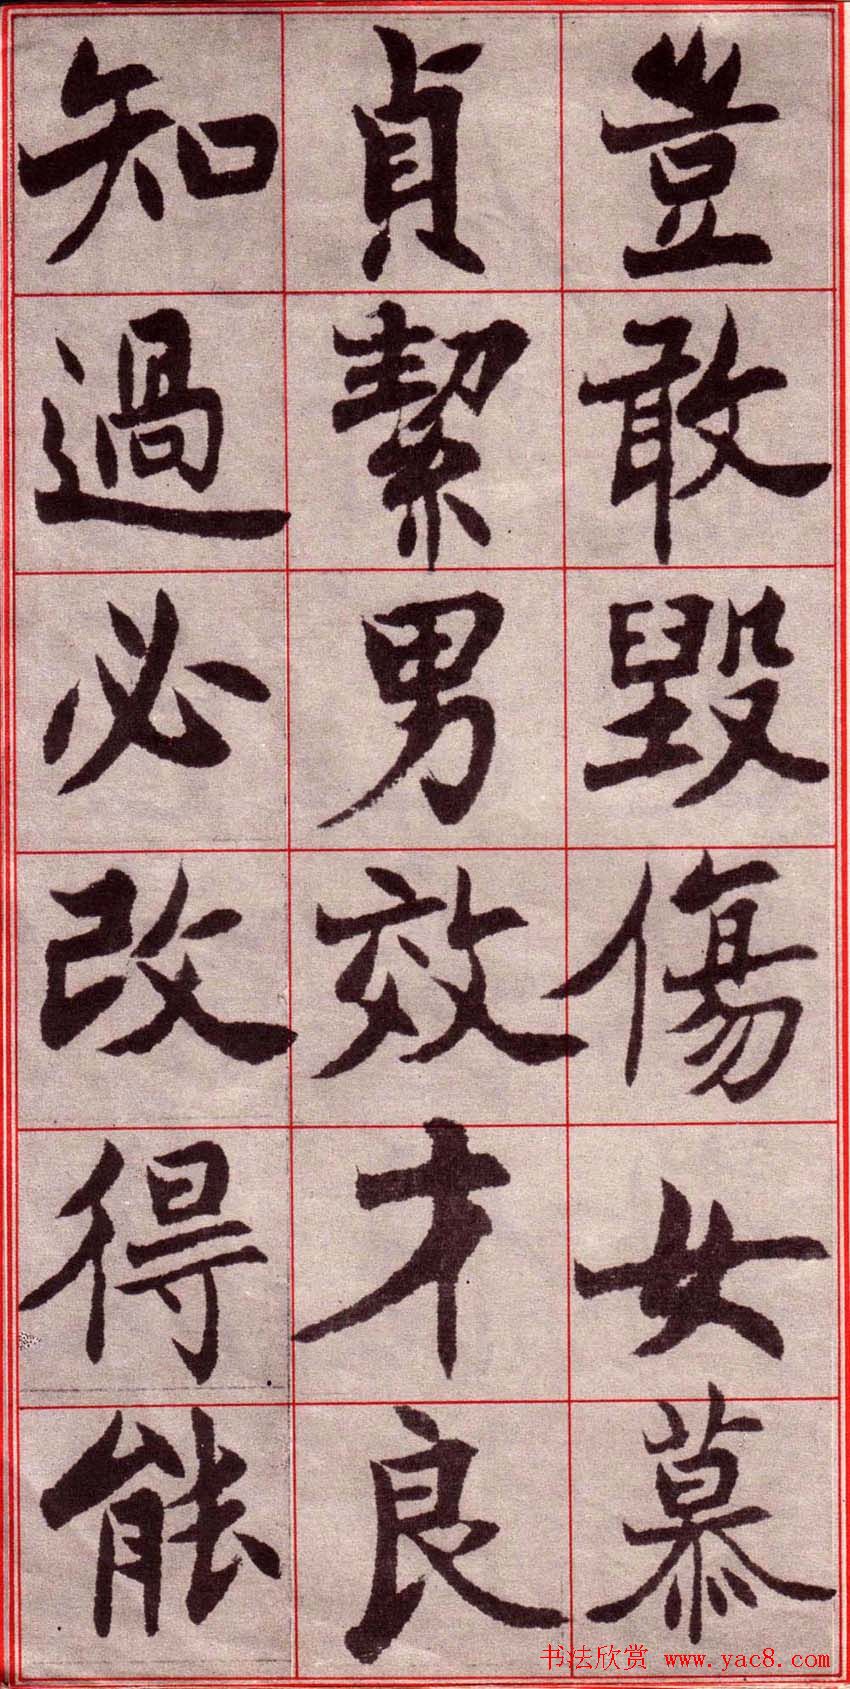 豈敢毀傷女慕
貞絜男效才良
知過必改得能
书法欣赏 www.yac8.com